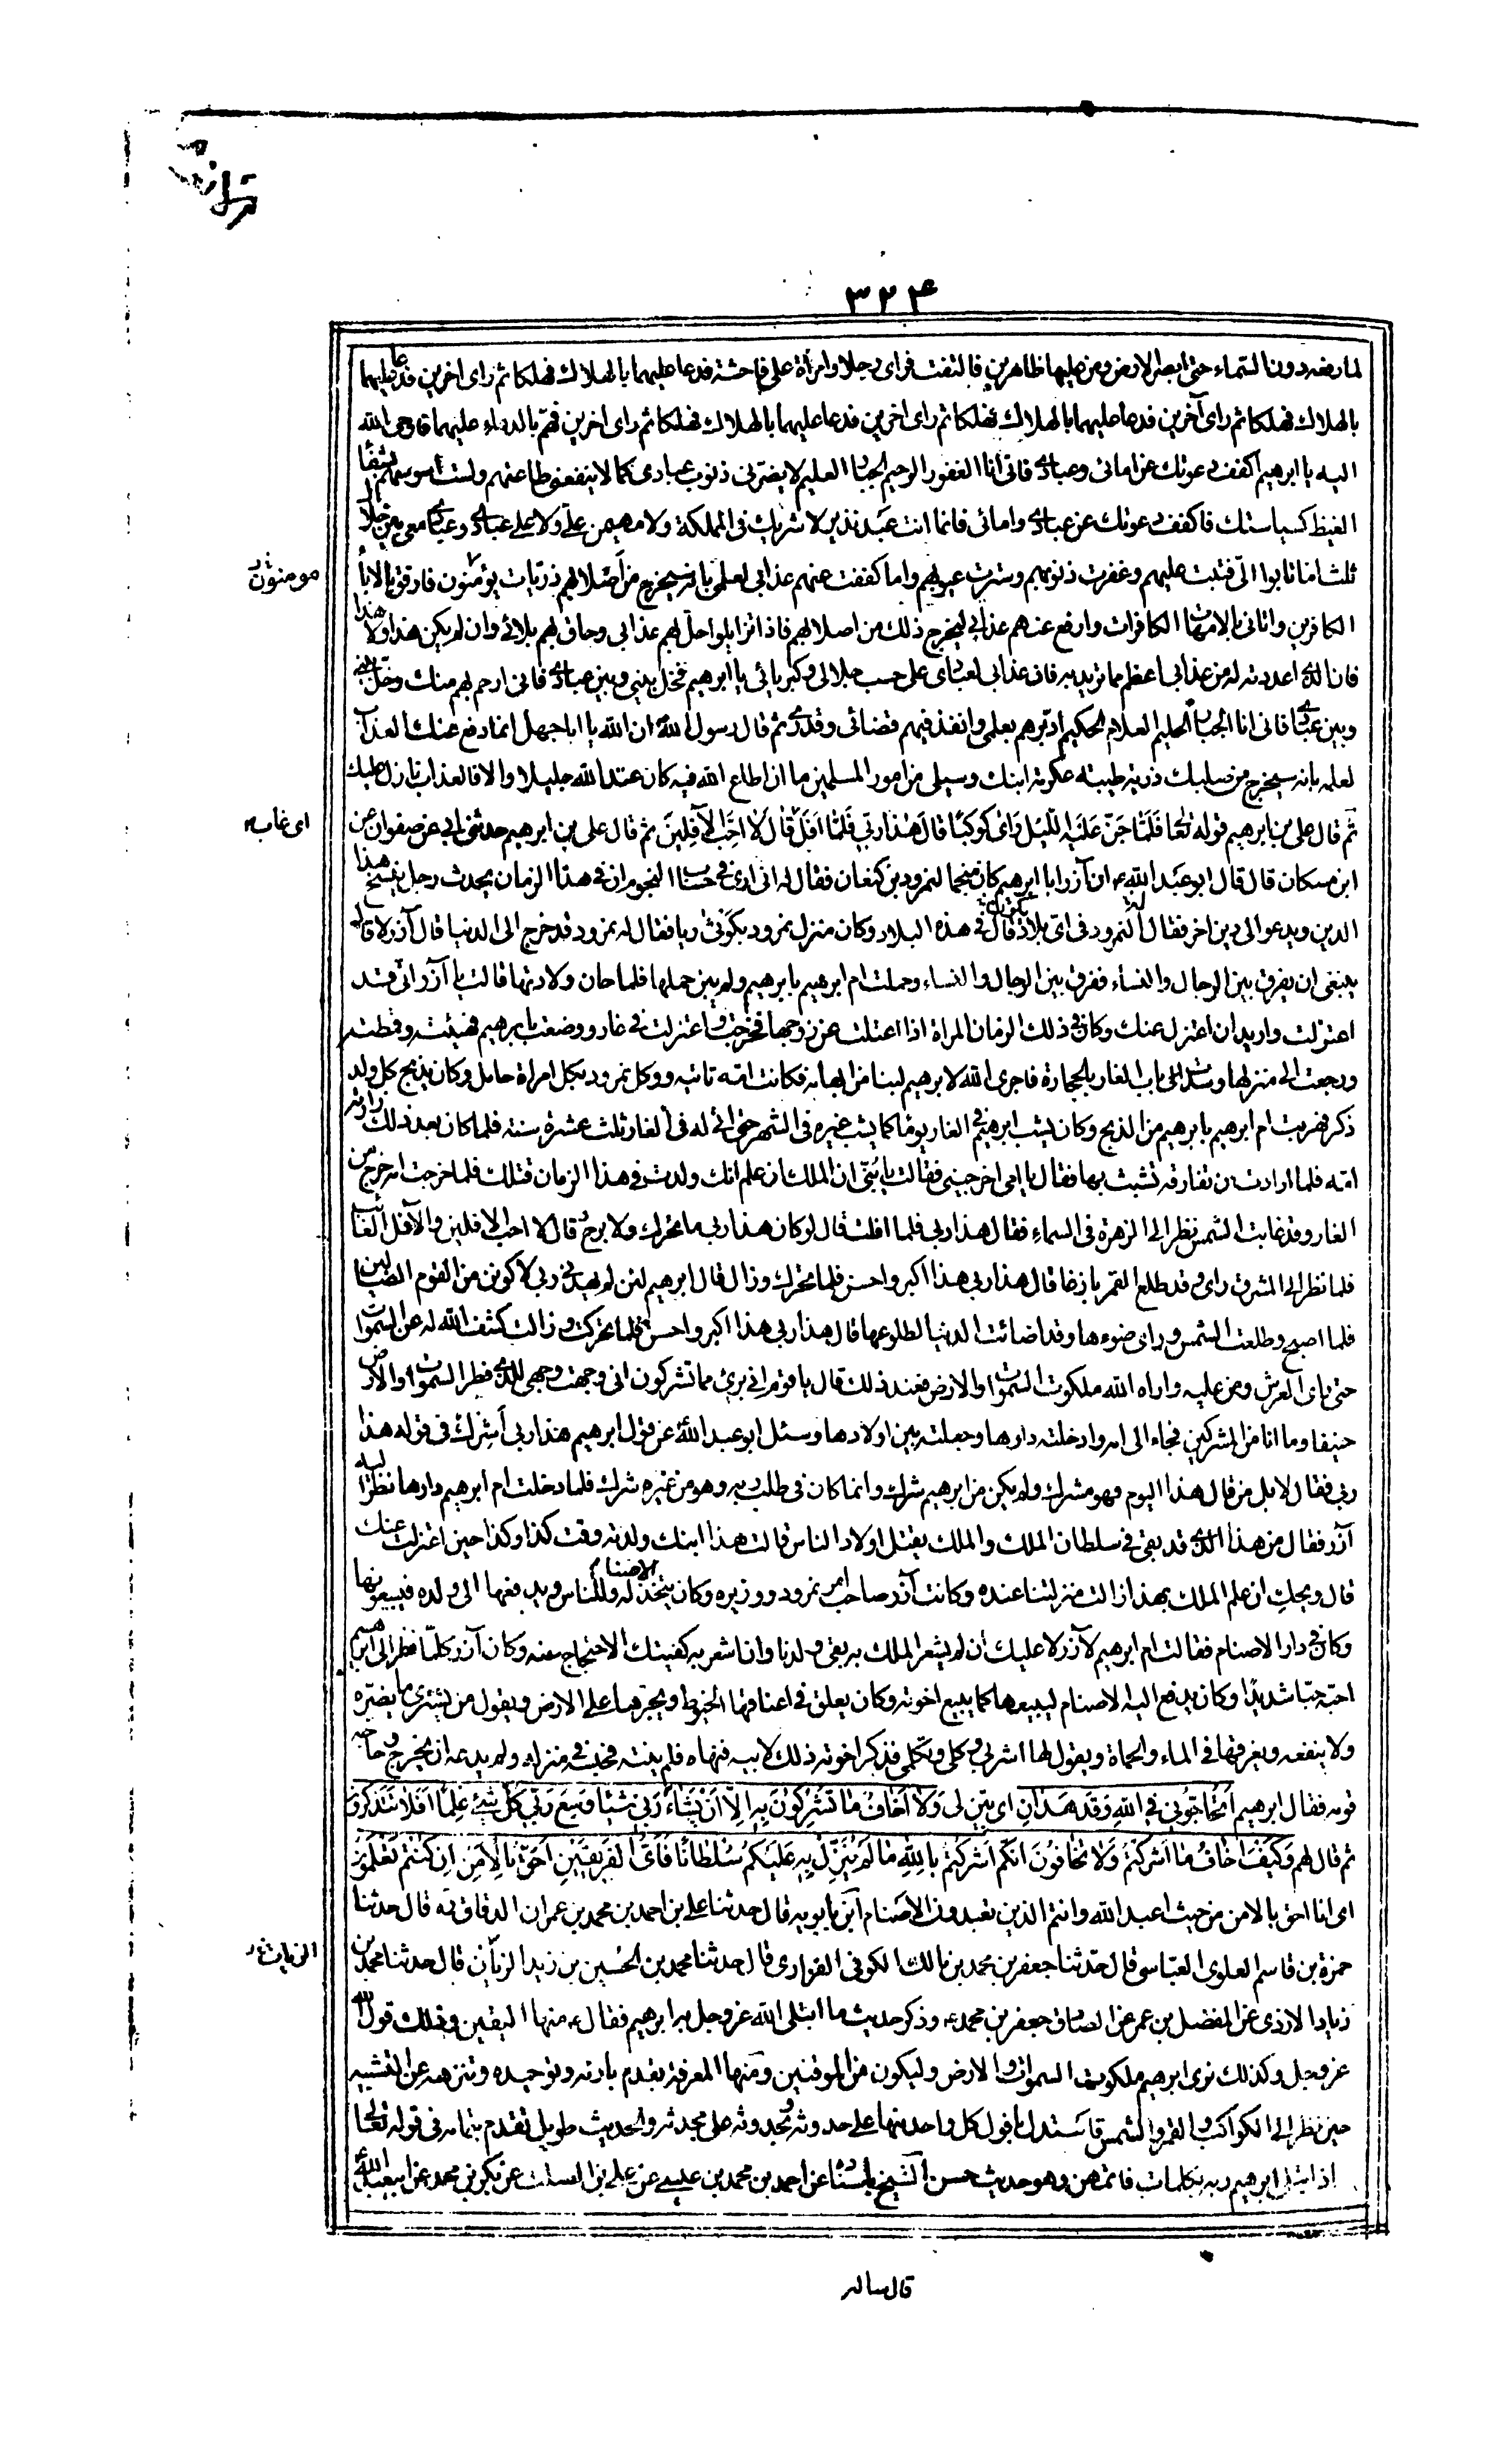 ٣٢٤
لما رفعه دون السماء حتى ابصر الارض ومن عليها ظاهرين فالتفت فراى رجلا وامراة على فاحشة فدعا عليهما بالهلاك فهلكا ثم راى اخرين فدعا عليهما
بالهلاك فهلكا ثم راى آخرين فدعا عليهما بالهلاك فهلكا ثم راى اخرين فدعا عليهما بالهلاك فهلكا ثم راى اخرين فهم بالدعاء عليهما فاوحى الله
اليه يا ابرهيم اكفف دعوتك عن امائى وعبادى فانى انا الغفور الرحيم الجبار العليم لا يضرنى ذنوب عبادى كما لا ينفعنى طاعتهم ولست اسوسهم بشفاء
الغيظ كسياستك فاكفف دعوتك عن عبادى وامائى فانما انت عبد نذير لا شريك فى المملكة ولا مهيمن على ولا على عبادى وعبادى معى بين خلال
ثلث اما تابوا الىّ فتبت عليهم وغفرت ذنوبهم وسترت عيوبهم واما كففت عنهم عذابى لعلمى بانه سيخرج من اصلابهم ذريات يؤمنون فارفق بالاباء
مومنون
الكافرين واتانى بالامهات الكافرات وارفع عنهم عذابى ليخرج ذلك من اصلابهم فاذا تزايلوا حل بهم عذابى وحاق بهم بلائى وان لم يكن هذا ولا هذا
فان الذى اعددته له من عذابى اعظم مما تريد به فان عذابى لعبادى على حسب جلالى وكبريائى يا ابرهيم فخل بينى وبين عبادى فانى ارحم بهم منك وخل بينى
وبين عبادى فانى انا الجبار الحليم العلام الحكيم ادبرهم بعلمى وانفذ فيهم قضائى وقدرى ثم قال رسول الله ان الله يا ابا جهل انما دفع عنك العذاب
لعلمه بانه سيخرج من صلبك ذرية طيبته عكرمة ابنك وسيلى من امور المسلمين ما ان اطاع الله فيه كان عند الله جليلا والا فالعذاب نازل عليك
ثم قال على بن ابرهيم قوله تعالى فَلَمَّا جَنَّ عَلَيْهِ اللَّيْلُ رَاى كَوْكَبًا قَالَ هٰذَا رَبّى فَلَمَّا اَفَلَ قَالَ لَا اُحِبُّ الْآفِلِينَ ثم قال على بن ابرهيم حدثنى ابى عن صفوان عن
اى غاب
ابن مسكان قال قال ابو عبد الله ع ان آزر ابا ابرهيم كان منجما لنمرود بن كنعان فقال له انى ارى فى حساب النجوم ان فى هذا الزمان يحدث رجل ينسخ هذا
الدين ويدعو الى دين اخر فقال النمرود فى اى بلاد قال فى هذه البلاد وكان منزل نمرود بكوثى ربا فقال له نمرود قد خرج الى الدنيا قال آزر لا قال
ينبغى ان يفرق بين الرجال والنساء ففرق بين الرجال والنساء وحملت ام ابرهيم بابرهيم ولم يبين حملها فلما حان ولادتها قالت يا آزر انى قد
اعتزلت واريد ان اعتزل عنك وكان فى ذلك الزمان المراة اذا اعتلت عن زوجها فخرجت واعتزلت فى غار ووضعت بابرهيم فهيئته وقمطته
ورجعت الى منزلها وسدت الى باب الغار بالحجارة فاجرى الله لابرهيم لبنا من ابهامه فكانت امه تاتيه ووكل نمرود بكل امراة حامل وكان يذبح كل ولد
ذكر فهربت ام ابرهيم بابرهيم من الذبح وكان يشب ابرهيم فى الغار يوما كما يشب غيره فى الشهر حتى اتى له فى الغار ثلث عشرة سنة فلما كان بعد ذلك زارته
امه فلما ارادت ان تفارقه تشبث بها فقال يا امى اخرجينى فقالت يا بنى ان الملك ان علم انك ولدت فى هذا الزمان قتلك فلما خرجت امه خرج من
الغار وقد غابت الشمس نظر الى الزهرة فى السماء فقال هذا ربى فلما افلت قال لو كان هذا ربى ما تحرك ولا برح قال لا احب الافلين والآفل الغائب
فلما نظر الى المشرق راى وقد طلع القمر بازغا قال هذا ربى هذا اكبر واحسن فلما تحرك وزال قال ابرهيم لئن لم يهدنى ربى لاكونن من القوم الضالين
فلما اصبح وطلعت الشمس وراى ضوءها وقد اضائت الدنيا لطلوعها قال هذا ربى هذا اكبر واحسن فلما تحركت وزالت كشف الله له عن السموات
حتى راى العرش ومن عليه واراه الله ملكوت السموات والارض فعند ذلك قال يا قوم انى برئ مما تشركون انى وجهت وجهى للذى فطر السموات والارض
حنيفا وما انا من المشركين فجاء الى امه وادخلته دارها وجعلته بين اولادها وسئل ابو عبد الله عن قول ابرهيم هذا ربى أشرك فى قوله هذا
ربى فقال لا بل من قال هذا اليوم فهو مشرك ولم يكن من ابرهيم شرك وانما كان فى طلب ربه وهو من غيره شرك فلما دخلت ام ابرهيم دارها نظر اليه
آزر فقال من هذا الذى قد بقى فى سلطان الملك والملك يقتل اولاد الناس قالت هذا ابنك ولدته وقت كذا وكذا حين اعتزلت عنك
قال ويحك ان علم الملك بهذا زالت منزلتنا عنده وكانت آزر صاحب امر نمرود ووزيره وكان يتخذ الاصنام له وللناس ويدفعها الى ولده فيبيعونها
وكان فى دار الاصنام فقالت ام ابرهيم لآزر لا عليك ان لم يشعر الملك به بقى ولدنا وان شعر به كفيتك الاحتجاج عنه وكان آزر كلما نظر الى ابرهيم
احبه حبا شديدا وكان يدفع اليه الاصنام ليبيعها كما يبيع اخوته وكان يعلق فى اعناقها الخيوط ويجرها على الارض ويقول من يشترى ما يضره
ولا ينفعه ويغرقها فى الماء والحماة ويقول لها اشربى وكلى وتكلمى فذكر اخوته ذلك لابيه فنهاه فلم ينته فحبسه فى منزله ولم يدعه ان يخرج وحاجه
قومه فقال ابرهيم اَتُحَاجُّونِى فِى اللّٰهِ وَقَدْ هَدَانِ اى بيّن لى وَلَا اَخَافُ مَا تُشْرِكُونَ بِهِ اِلَّا اَنْ يَشَاءَ رَبِّى شَيْئًا وَسِعَ رَبِّى كُلَّ شَيْءٍ عِلْمًا اَفَلَا تَتَذَكَّرُونَ
ثم قال لهم وَكَيْفَ اَخَافُ مَا اَشْرَكْتُمْ وَلَا تَخَافُونَ اَنَّكُمْ اَشْرَكْتُمْ بِاللّٰهِ مَا لَمْ يُنَزِّلْ بِهِ عَلَيْكُمْ سُلْطَانًا فَاَىُّ الْفَرِيقَيْنِ اَحَقُّ بِالْاَمْنِ اِنْ كُنْتُمْ تَعْلَمُونَ
اى انا احق بالامن من حيث اعبد الله وانتم الذين تعبدون الاصنام ابن بابويه قال حدثنا على بن احمد بن محمد بن عمران الدقاق ره قال حدثنا
حمزة بن قاسم العلوى العباسى قال حدثنا جعفر بن محمد بن مالك الكوفى الفزارى قال حدثنا محمد بن الحسين بن زيد الزيات قال حدثنا محمد بن
الزيات
زياد الازدى عن المفضل بن عمر عن الصادق جعفر بن محمد ع وذكر حديث ما ابتلى الله عز وجل به ابرهيم فقال ع منها اليقين وذلك قول الله
عز وجل وكذلك نرى ابرهيم ملكوت السموات والارض وليكون من الموقنين ومنها المعرفة بقدم بارئه وتوحيده وتنزهه عن التشبيه
حين نظر الى الكواكب والقمر والشمس فاستدل بافول كل واحد منها على حدوثه وبحدوثه على محدثه والحديث طويل تقدم بتمامه فى قوله تعالى
اذ ابتلى ابرهيم ربه بكلمات فاتمهن وهو حديث حسن الشيخ باسناده عن احمد بن محمد بن عيسى عن على بن الصلت عن بكر بن محمد عن ابيعبد الله
قال ساله